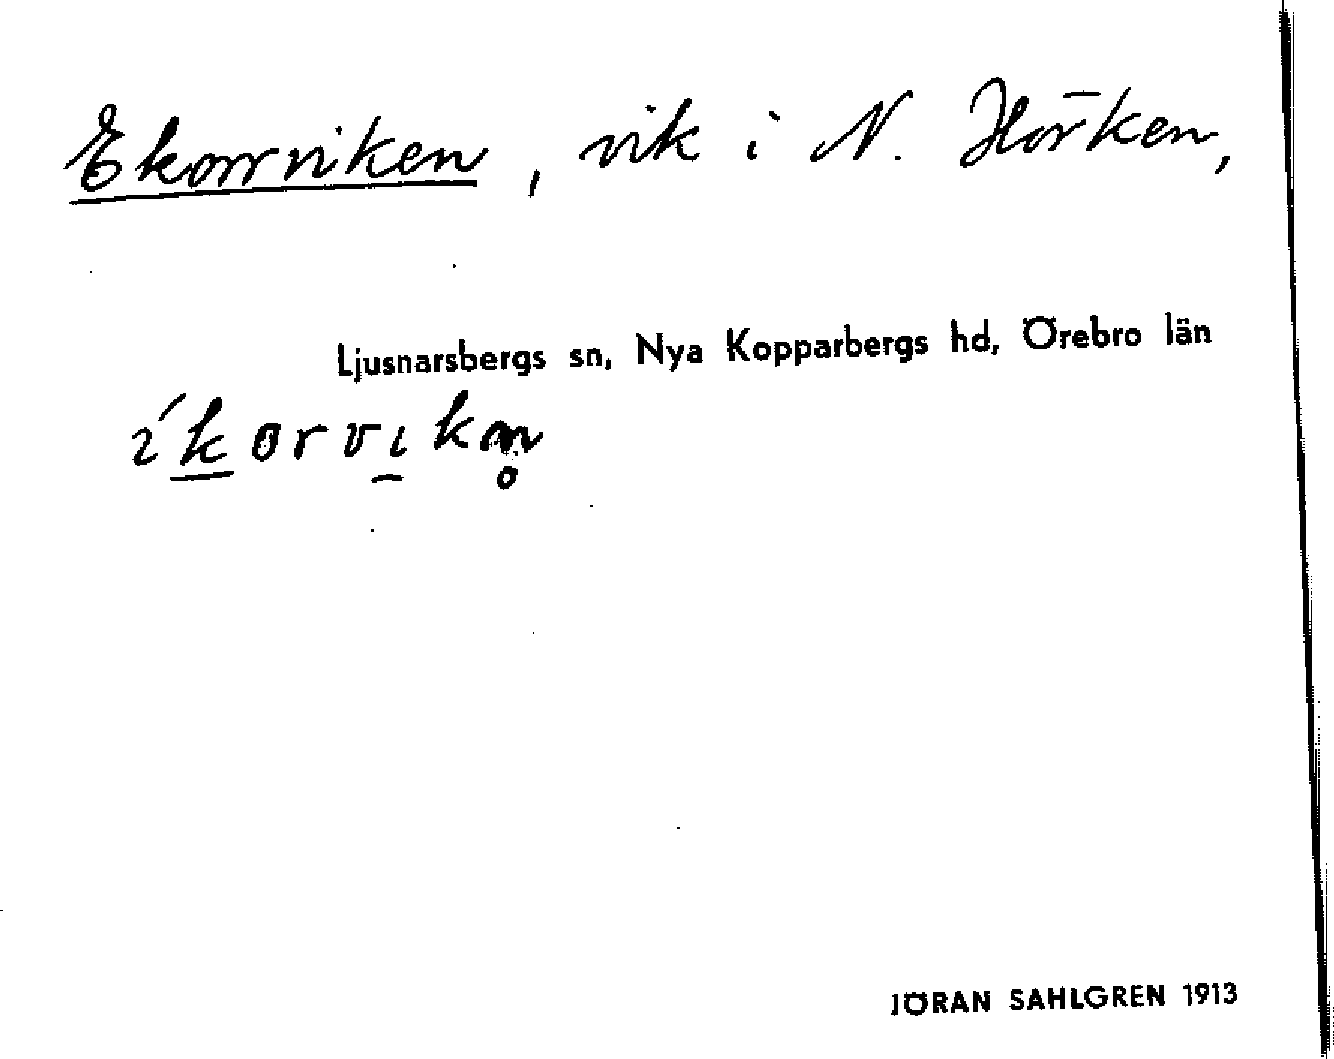 Ekorrviken, vik i N. Hörken,
Ljusnarsbergs sn, Nya Kopparbergs hd, Örebro län
íkorvikn̥
JÖRAN SAHLGREN 1913